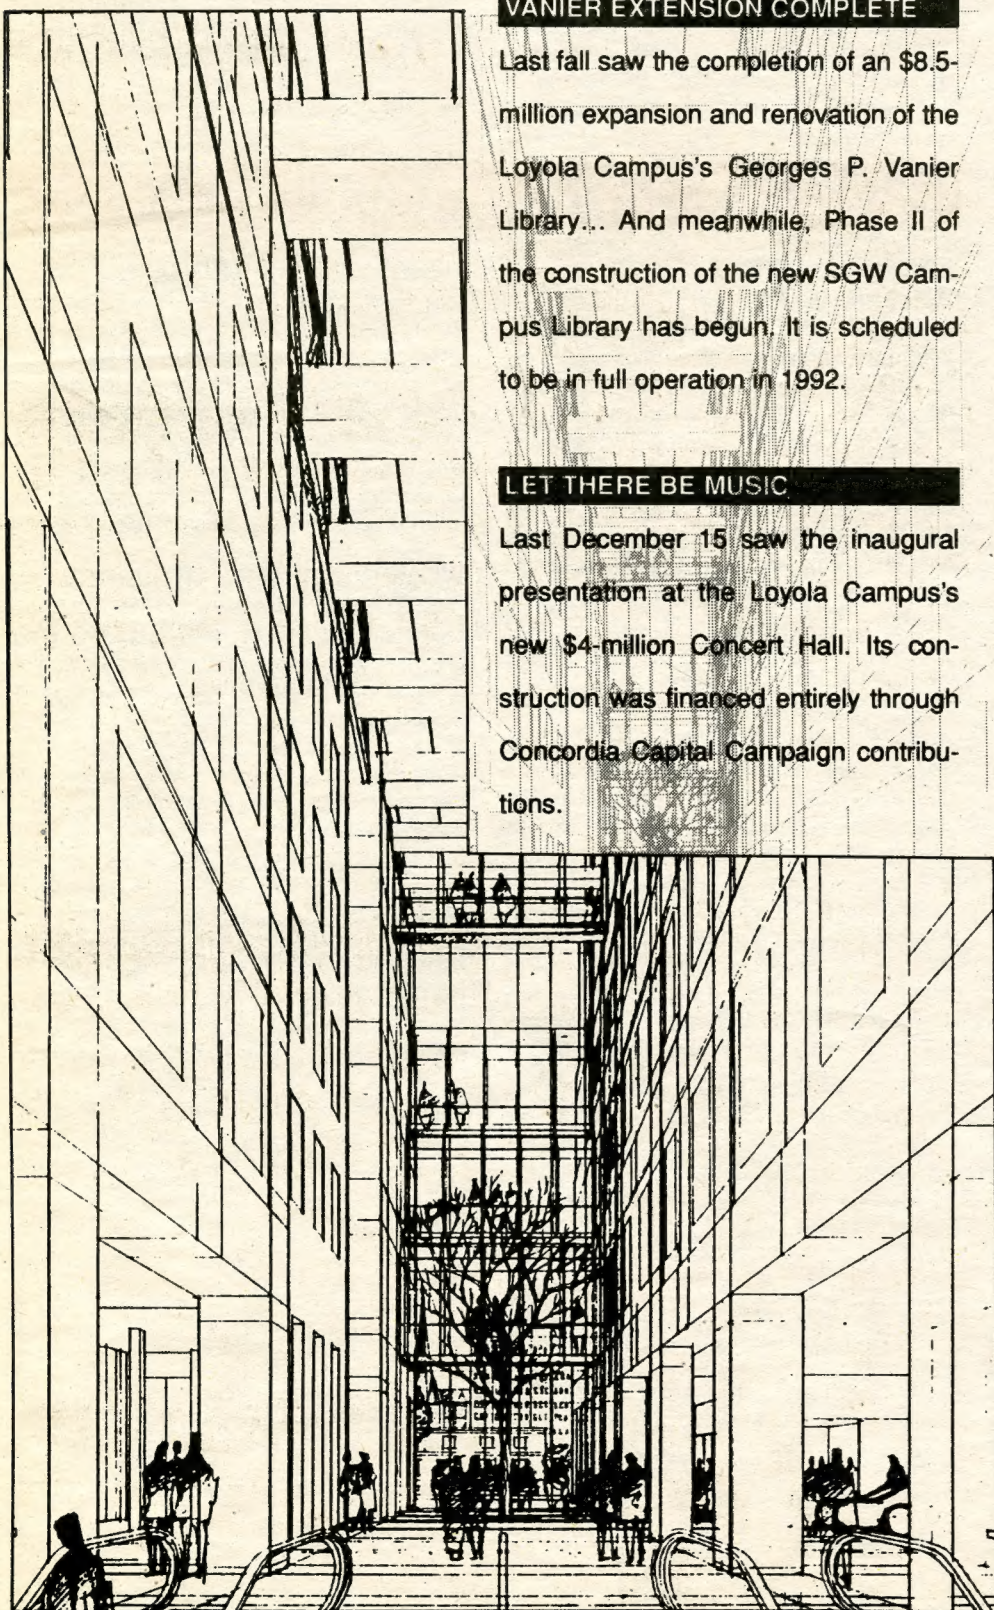 VANIER EXTENSION COMPLETE
Last fall saw the completion of an $8.5-
million expansion and renovation of the
Loyola Campus's Georges P. Vanier
Library... And meanwhile, Phase II of
the construction of the new SGW Cam-
pus Library has begun. It is scheduled
to be in full operation in 1992.
LET THERE BE MUSIC
Last December 15 saw the inaugural
presentation at the Loyola Campus's
new $4-million Concert Hall. Its con-
struction was financed entirely through
Concordia Capital Campaign contribu-
tions.